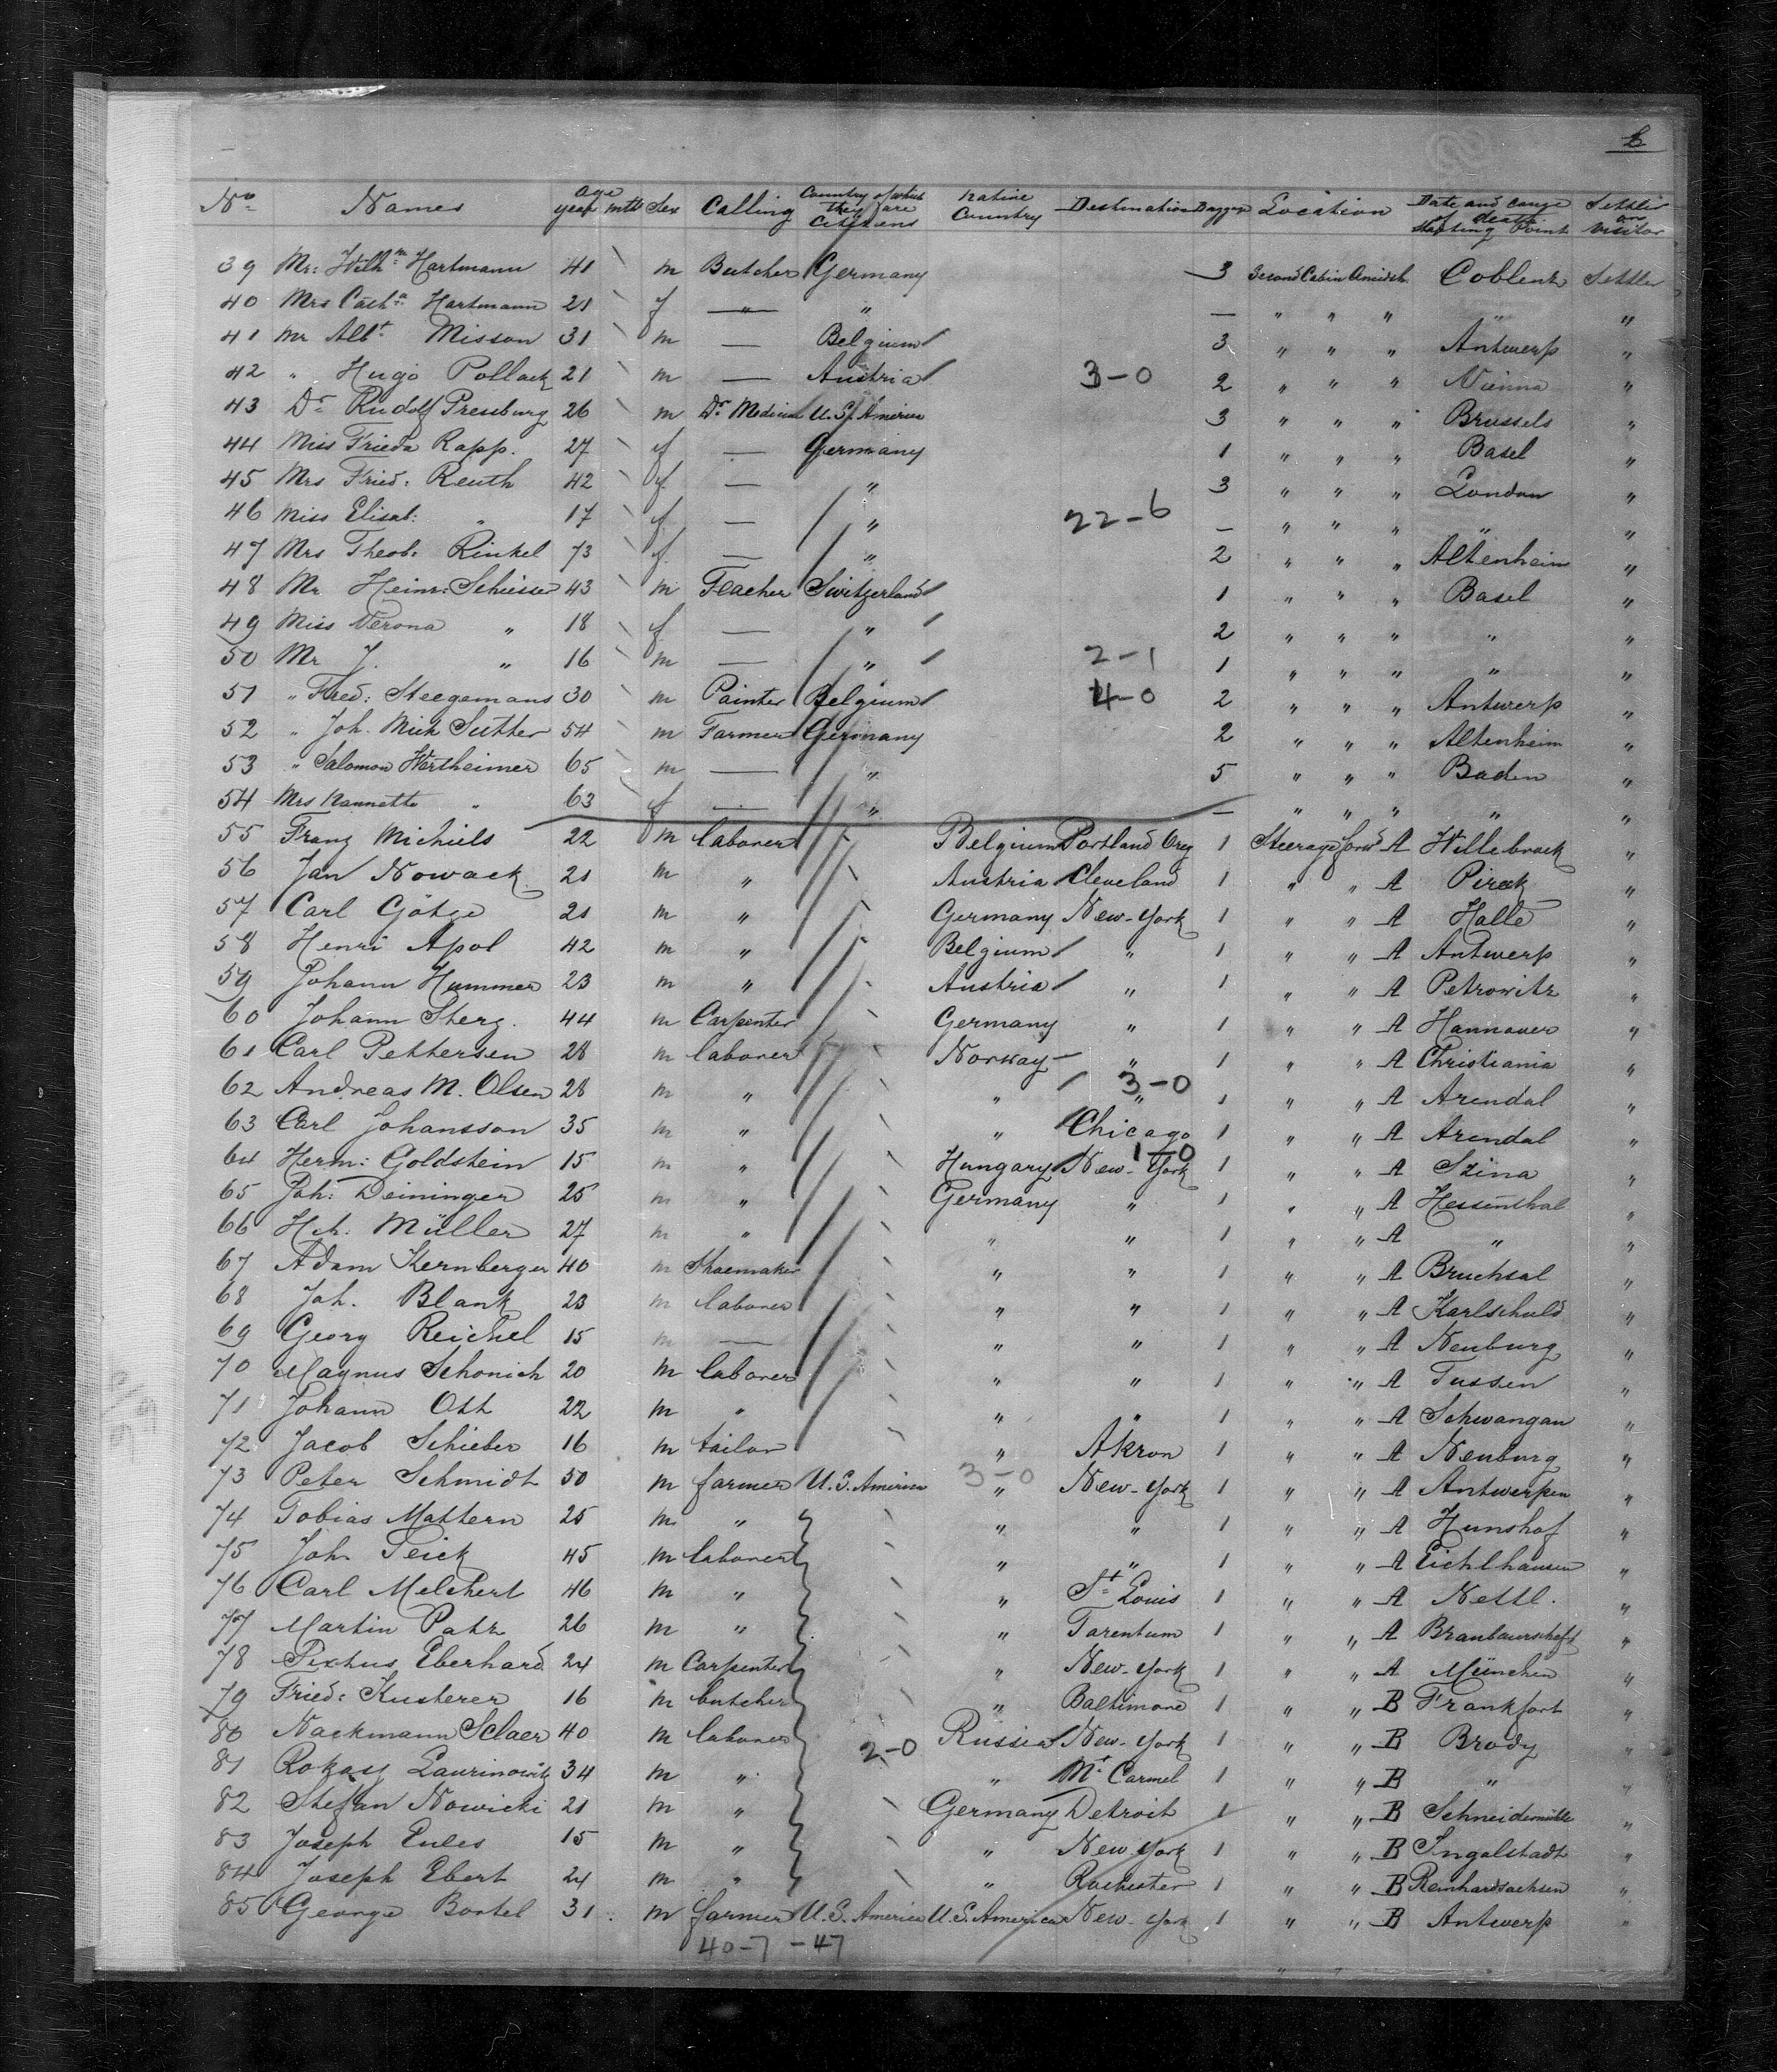 No Names Age year mth Sex Calling Country of which they are Citizens Native Country Destination Baggage Location Date and cause of death. Starting Point Settler or Visitor
39 Mr: Wilhm Hartmann 41 m Butcher Germany 3 Second Cabin Amidsh. Coblentz Settler
40 Mrs Cath: Hartmann 21 f " " — " " " " "
41 Mr Albt Misson 31 m — Belgium 3 " " " Antwerp "
42 " Hugo Pollack 21 m — Austria 3-0 2 " " " Vienna "
43 Dr Rudolf Pressburg 26 m Dr Medicine U.St. America 3 " " " Brussels "
44 Miss Frieda Rapp. 27 f — Germany 1 " " " Basel "
45 Mrs Fried: Reuth 42 f — " 3 " " " London "
46 Miss Elisab: " 17 f — " 22-6 — " " " " "
47 Mrs Theob: Rinkel 73 f — " 2 " " " Altenheim "
48 Mr Heinr: Schiesser 43 m Teacher Switzerland 1 " " " Basel "
49 Miss Verona " 18 f — " 2 " " " " "
50 Mr J. " 16 m — " 2-1 1 " " " " "
51 " Fred: Steegemans 30 m Painter Belgium 4-0 2 " " " Antwerp "
52 " Joh. Mich Sutter 54 m Farmer Germany 2 " " " Altenheim "
53 " Salomon Wertheimer 65 m — " 5 " " " Baden "
54 Mrs Nannette " 63 f — " — " " " " "
55 Franz Michiels 22 m laborer Belgium Portland Oreg 1 Steerage forwd A Willebroek "
56 Jan Nowack 21 m " Austria Cleveland 1 " " A Pireck "
57 Carl Götze 21 m " Germany New-York 1 " " A Halle "
58 Henri Apol 42 m " Belgium " 1 " " A Antwerp "
59 Johann Hummer 23 m " Austria " 1 " " A Petrowitz "
60 Johann Sterz. 44 m Carpenter Germany " 1 " " A Hannover "
61 Carl Pettersen 28 m laborer Norway " 1 " " A Christiania "
62 Andreas M. Olsen 28 m " " 3-0 " 1 " " A Arendal "
63 Carl Johansson 35 m " " Chicago 1 " " A Arendal "
64 Herm: Goldstein 15 m " Hungary New-York 1-0 1 " " A Szina "
65 Joh: Deininger 25 m " Germany " 1 " " A Hessenthal "
66 Hch. Müller 27 m " " " 1 " " A " "
67 Adam Kernberger 40 m Shoemaker " " 1 " " A Bruchsal "
68 Joh. Blank 23 m laborer " " 1 " " A Karlschuld "
69 Georg Reichel 15 m — " " 1 " " A Neuburg "
70 Magnus Schonich 20 m laborer " " 1 " " A Fussen "
71 Johann Ott 22 m " " " 1 " " A Schwangau "
72 Jacob Schieber 16 m tailor " Akron 1 " " A Neuburg "
73 Peter Schmidt 50 m farmer U.S. America 3-0 " New-York 1 " " A Antwerpen "
74 Tobias Mattern 25 m " " " 1 " " A Hunshof "
75 Joh. Teick 45 m laborer " " 1 " " A Eichlhausen "
76 Carl Melchert 46 m " " St Louis 1 " " A Nettl. "
77 Martin Patz 26 m " " Tarentum 1 " " A "
78 Pixtus Eberhard 24 m Carpenter " New-York 1 " " A München "
79 Fried: Kusterer 16 m butcher " Baltimore 1 " " B Frankfort "
80 Nackmann Sclaer 40 m laborer 2-0 Russia New-York 1 " " B Brody "
81 Rokasy Laurinowitz 34 m " " Mt Carmel 1 " " B " "
82 Stefan Nowicki 21 m " Germany Detroit 1 " " B Schneidemühle "
83 Joseph Eules 15 m " " New York 1 " " B Ingolstadt "
84 Joseph Ebert 24 m " " Rochester 1 " " B Reinhardsachsen "
85 George Bortel 31 m farmer U.S. America U.S. America New-York 1 " " B Antwerp "
40-7 -47